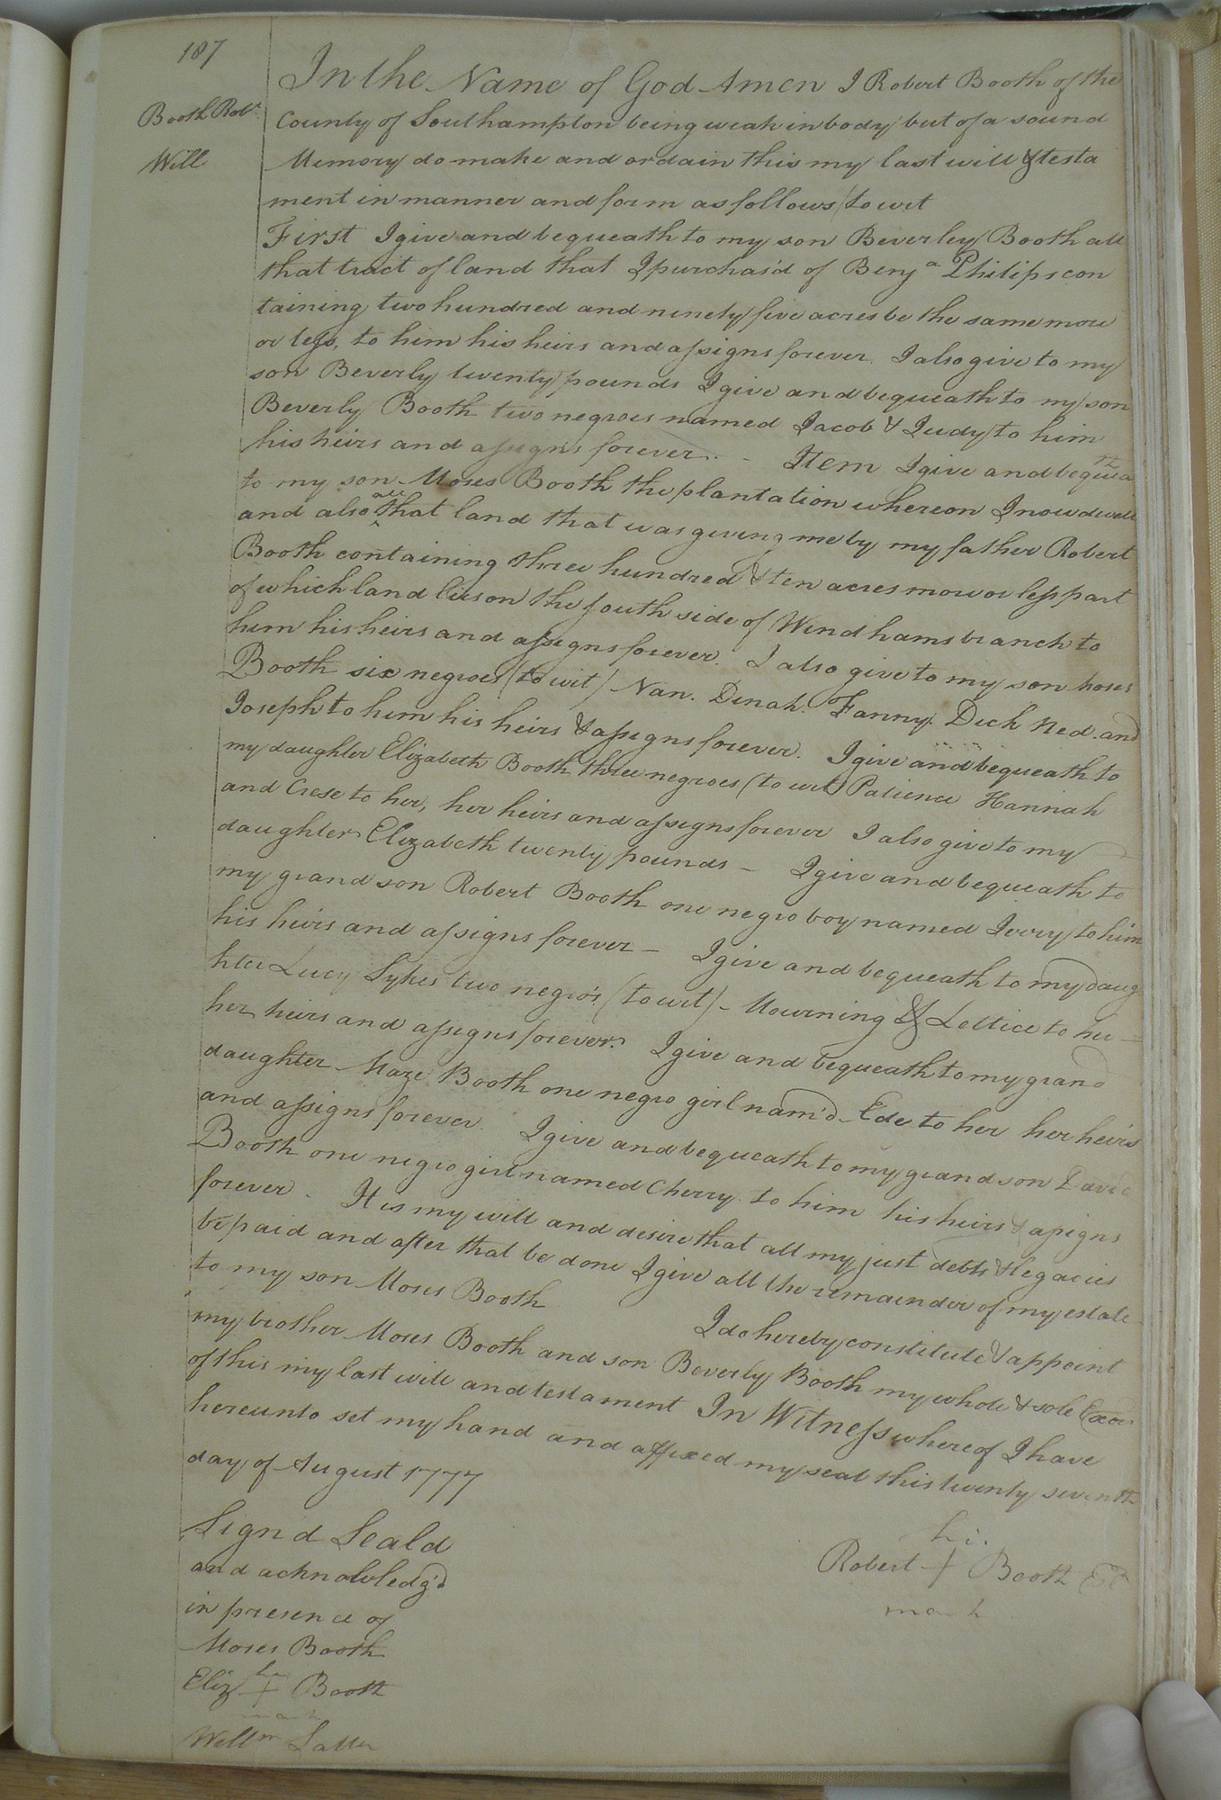 187
Booth Robt.
Will
In the Name of God Amen I Robert Booth of the
County of Southampton being weak in body but of a sound
Memory do make and ordain this my last will & testa
ment in manner and form as follows (to wit
First I give and bequeath to my son Beverley Booth all
that tract of land that I purchas'd of Benja Philips con
taining two hundred and ninety five acres be the same more
or less, to him his heirs and assigns forever. I also give to my
son Beverly twenty pounds I give and bequeath to my son
Beverly Booth two negroes named Jacob & Judy to him
his heirs and assigns forever. - Item I give and bequea th
to my son Moses Booth the plantation whereon I now dwell
and also all that land that was giving me by my father Robert
Booth containing three hundred & ten acres more or less part
of which land lies on the south side of Windhams branch to
him his heirs and assigns forever. I also give to my son Moses
Booth six negroes (to wit) Nan. Dinah. Fanny. Dick Ned. and
Joseph to him his heirs & assigns forever. I give and bequeath to
my daughter Elizabeth Booth three negroes (to wit) Patience Hannah
and Crese to her, her heirs and assigns forever I also give to my
daughter Elizabeth twenty pounds - I give and bequeath to
my grand son Robert Booth one negro boy named Ivory to him
his heirs and assigns forever - I give and bequeath to my daug
hter Lucy Sykes two negro's (to wit) - Mourning & Lettice to her
her heirs and assigns forever. I give and bequeath to my grand
daughter Maze Booth one negro girl nam'd Ede to her her heirs
and assigns forever. I give and bequeath to my grand son David
Booth one negro girl named Cherry to him his heirs & assigns
forever. It is my will and desire that all my just debts & legacies
be paid and after that be done I give all the remainder of my estate
to my son Moses Booth I do hereby constitute & appoint
my brother Moses Booth and son Beverly Booth my whole & sole Exors
of this my last will and testament In Witness whereof I have
hereunto set my hand and affixed my seal this twenty seventh
day of August 1777
Sign'd Seald
and acknowledg'd
in presence of
Moses Booth
Eliz + Booth
mark
Willm
his
Robert + Booth
mark